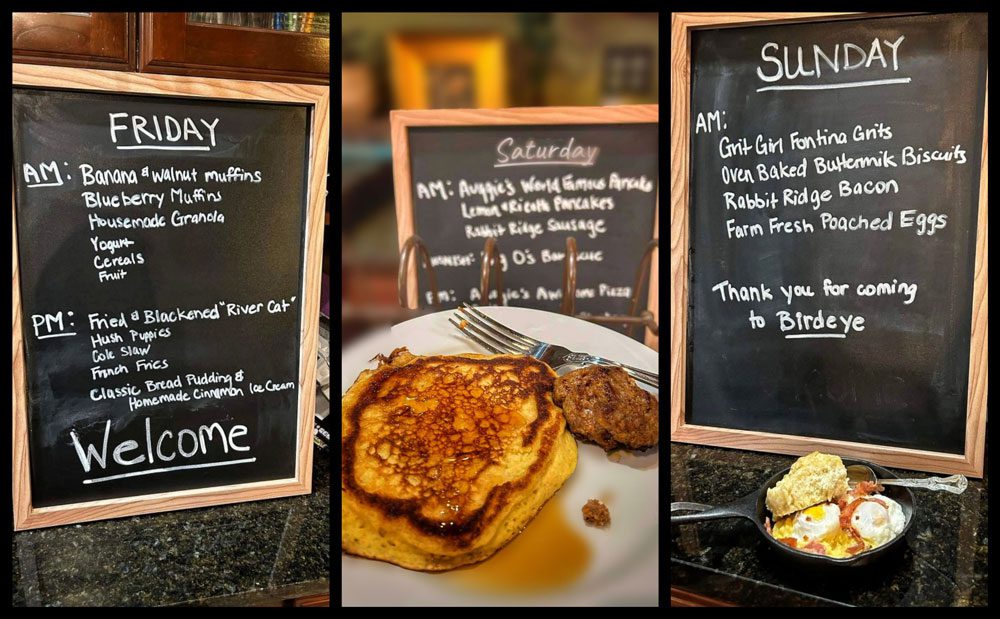 FRIDAY
AM: Banana & walnut muffins
Blueberry Muffins
Housemade Granola
Yogurt
Cereals
Fruit
PM: Fried & Blackened "River Cat"
Hush Puppies
Cole Slaw
French Fries
Classic Bread Pudding &
Homemade Cinnamon Ice Cream
Welcome
Saturday
AM: Auggie's World Famous Pancake
Lemon & Ricotta Pancakes
Rabbit Ridge Sausage
O's
PM: Pizza
SUNDAY
AM:
Grit Girl Fontina Grits
Oven Baked Buttermik Biscuits
Rabbit Ridge Bacon
Farm Fresh Poached Eggs
Thank you for coming
to Birdeye